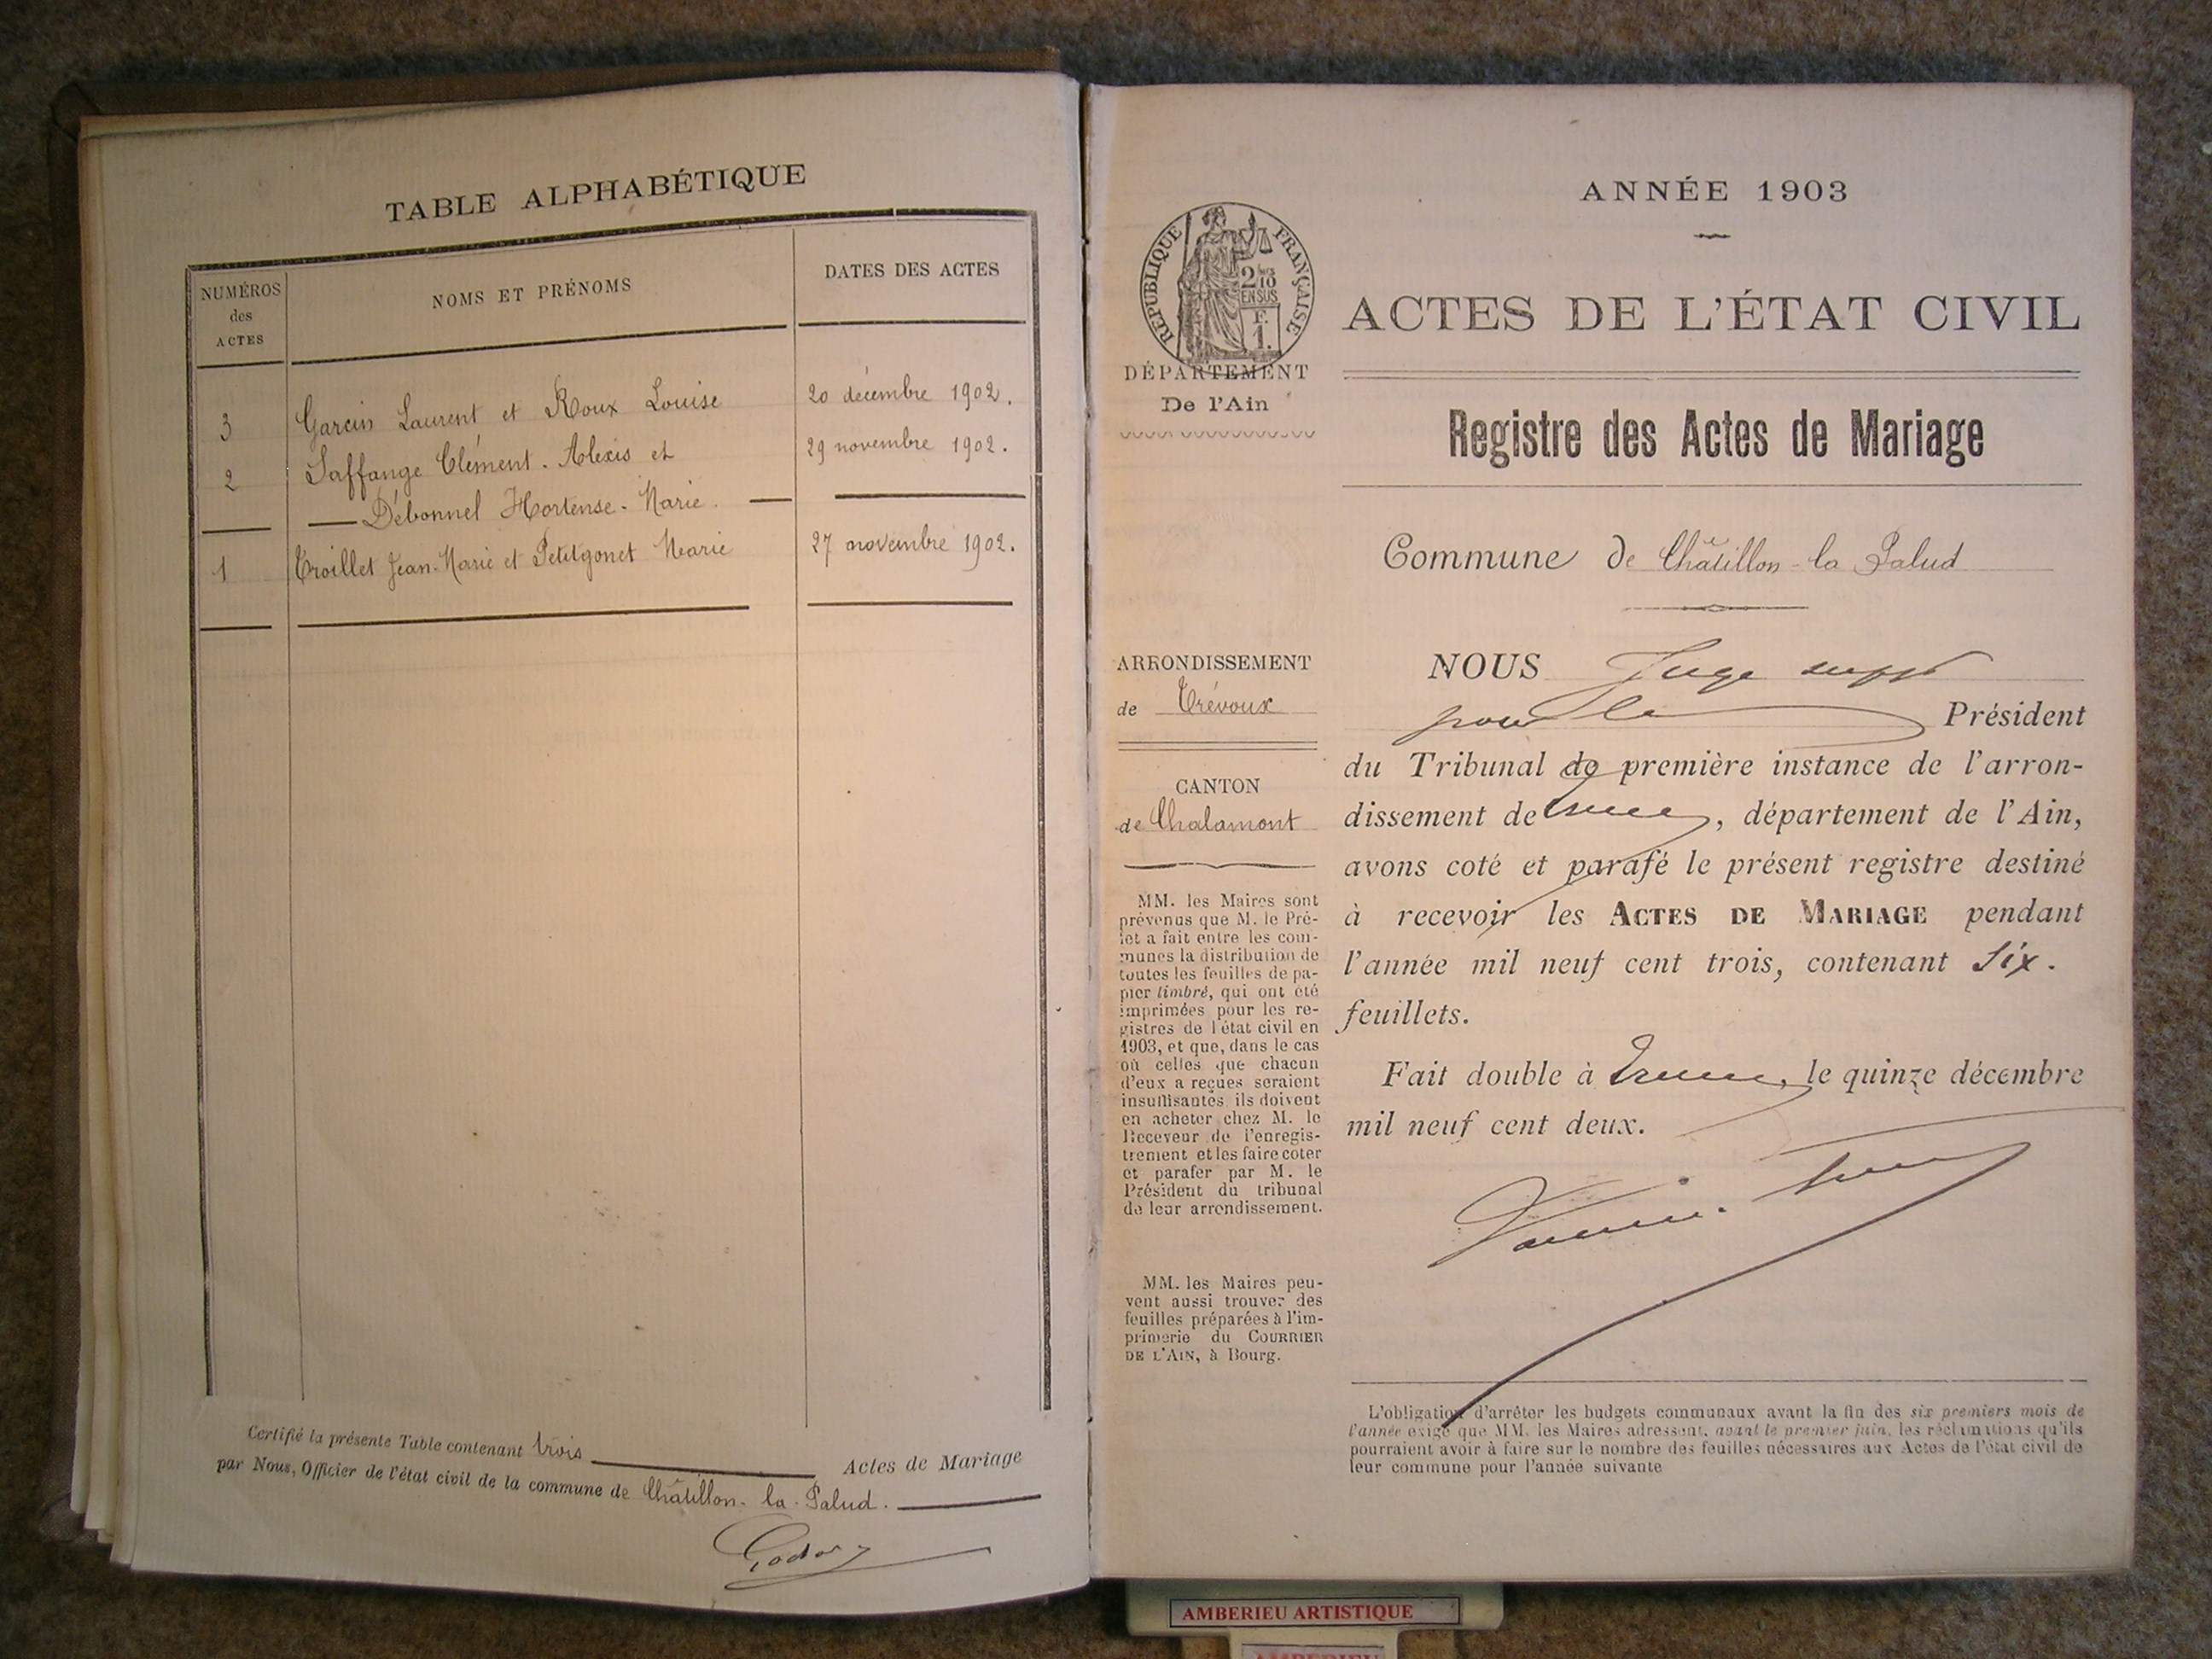 TABLE ALPHABÉTIQUE
NUMÉROS
des
ACTES
NOMS ET PRÉNOMS
DATES DES ACTES
3 Garcin Laurent et Roux Louise 20 décembre 1902.
2 Saffange Clément-Alexis et 29 novembre 1902.
Débonnel Hortense-Marie.
1 Troillet Jean-Marie et Petitgonet Marie 27 novembre 1902.
Certifié la présente Table contenant trois Actes de Mariage
par Nous, Officier de l'état civil de la commune de Châtillon-la-Palud.
RÉPUBLIQUE FRANÇAISE
2/10
EN SUS
F.
1.
DÉPARTEMENT
De l'Ain
ARRONDISSEMENT
de Trévoux
CANTON
de Chalamont
MM. les Maires sont
prévenus que M. le Pré-
fet a fait entre les com-
munes la distribution de
toutes les feuilles de pa-
pier timbré, qui ont été
imprimées pour les re-
gistres de l'état civil en
1903, et que, dans le cas
où celles que chacun
d'eux a reçues seraient
insuffisantes, ils doivent
en acheter chez M. le
Receveur de l'enregis-
trement et les faire coter
et parafer par M. le
Président du tribunal
de leur arrondissement.
MM. les Maires peu-
vent aussi trouver des
feuilles préparées à l'im-
primerie du COURRIER
DE L'AIN, à Bourg.
ANNÉE 1903
ACTES DE L'ÉTAT CIVIL
Registre des Actes de Mariage
Commune de Châtillon-la Palud
NOUS Juge supp
pour le Président
du Tribunal de première instance de l'arron-
dissement de , département de l'Ain,
avons coté et parafé le présent registre destiné
à recevoir les ACTES DE MARIAGE pendant
l'année mil neuf cent trois, contenant six.
feuillets.
Fait double à , le quinze décembre
mil neuf cent deux.
L'obligation d'arrêter les budgets communaux avant la fin des six premiers mois de
l'année exige que MM. les Maires adressent, avant le premier juin, les réclamations qu'ils
pourraient avoir à faire sur le nombre des feuilles nécessaires aux Actes de l'état civil de
leur commune pour l'année suivante
AMBERIEU ARTISTIQUE
AMBERIEU